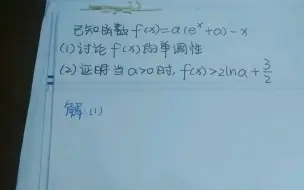 已知函数f(x)=a(eˣ+a)-x
(1)讨论f(x)的单调性
(2)证明当a>0时,f(x)>2lna+3/2
解(1)